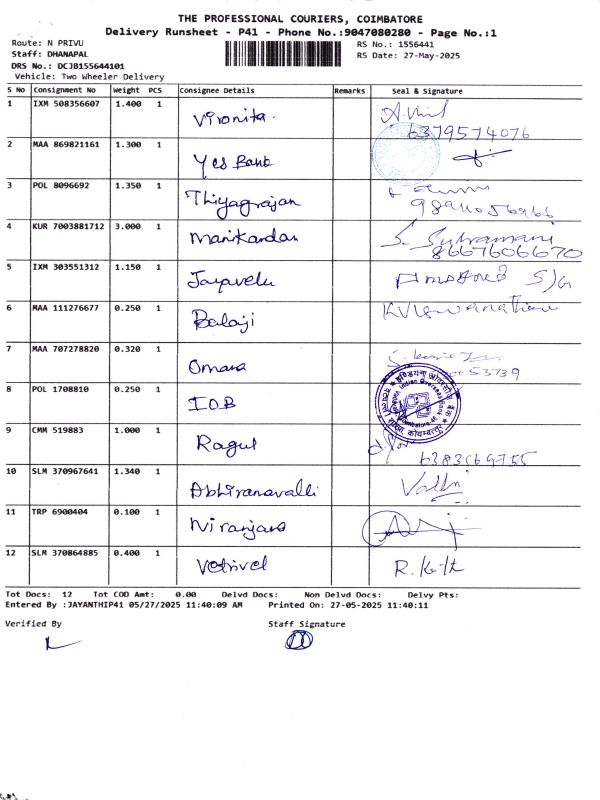 THE PROFESSIONAL COURIERS, COIMBATORE
Delivery Runsheet - P41 - Phone No.:9047080280 - Page No.:1
Route: N PRIVU
Staff: DHANAPAL
DRS No.: DCJB155644101
Vehicle: Two Wheeler Delivery
RS No.: 1556441
RS Date: 27-May-2025
S No Consignment No Weight PCS Consignee Details Remarks Seal & Signature
1 IXM 508356607 1.400 1 Vironita. 6379574076
2 MAA 869821161 1.300 1 Yes Bank
3 POL 8096692 1.350 1 Thiyagrajan
4 KUR 7003881712 3.000 1 Manikandan S. Subramani 8667606670
5 IXM 303551312 1.150 1 Jayavelu S/G
6 MAA 111276677 0.250 1 Balaji
7 MAA 707278820 0.320 1 Omana
8 POL 1708810 0.250 1 IOB Indian Overseas Bank
9 CMM 519883 1.000 1 Ragul
10 SLM 370967641 1.340 1 Abhiranavalli Valli
11 TRP 6900404 0.100 1 Niranjana
12 SLM 370864885 0.400 1 Vetrivel
Tot Docs: 12 Tot COD Amt: 0.00 Delvd Docs: Non Delvd Docs: Delvy Pts:
Entered By :JAYANTHIP41 05/27/2025 11:40:09 AM Printed On: 27-05-2025 11:40:11
Verified By Staff Signature